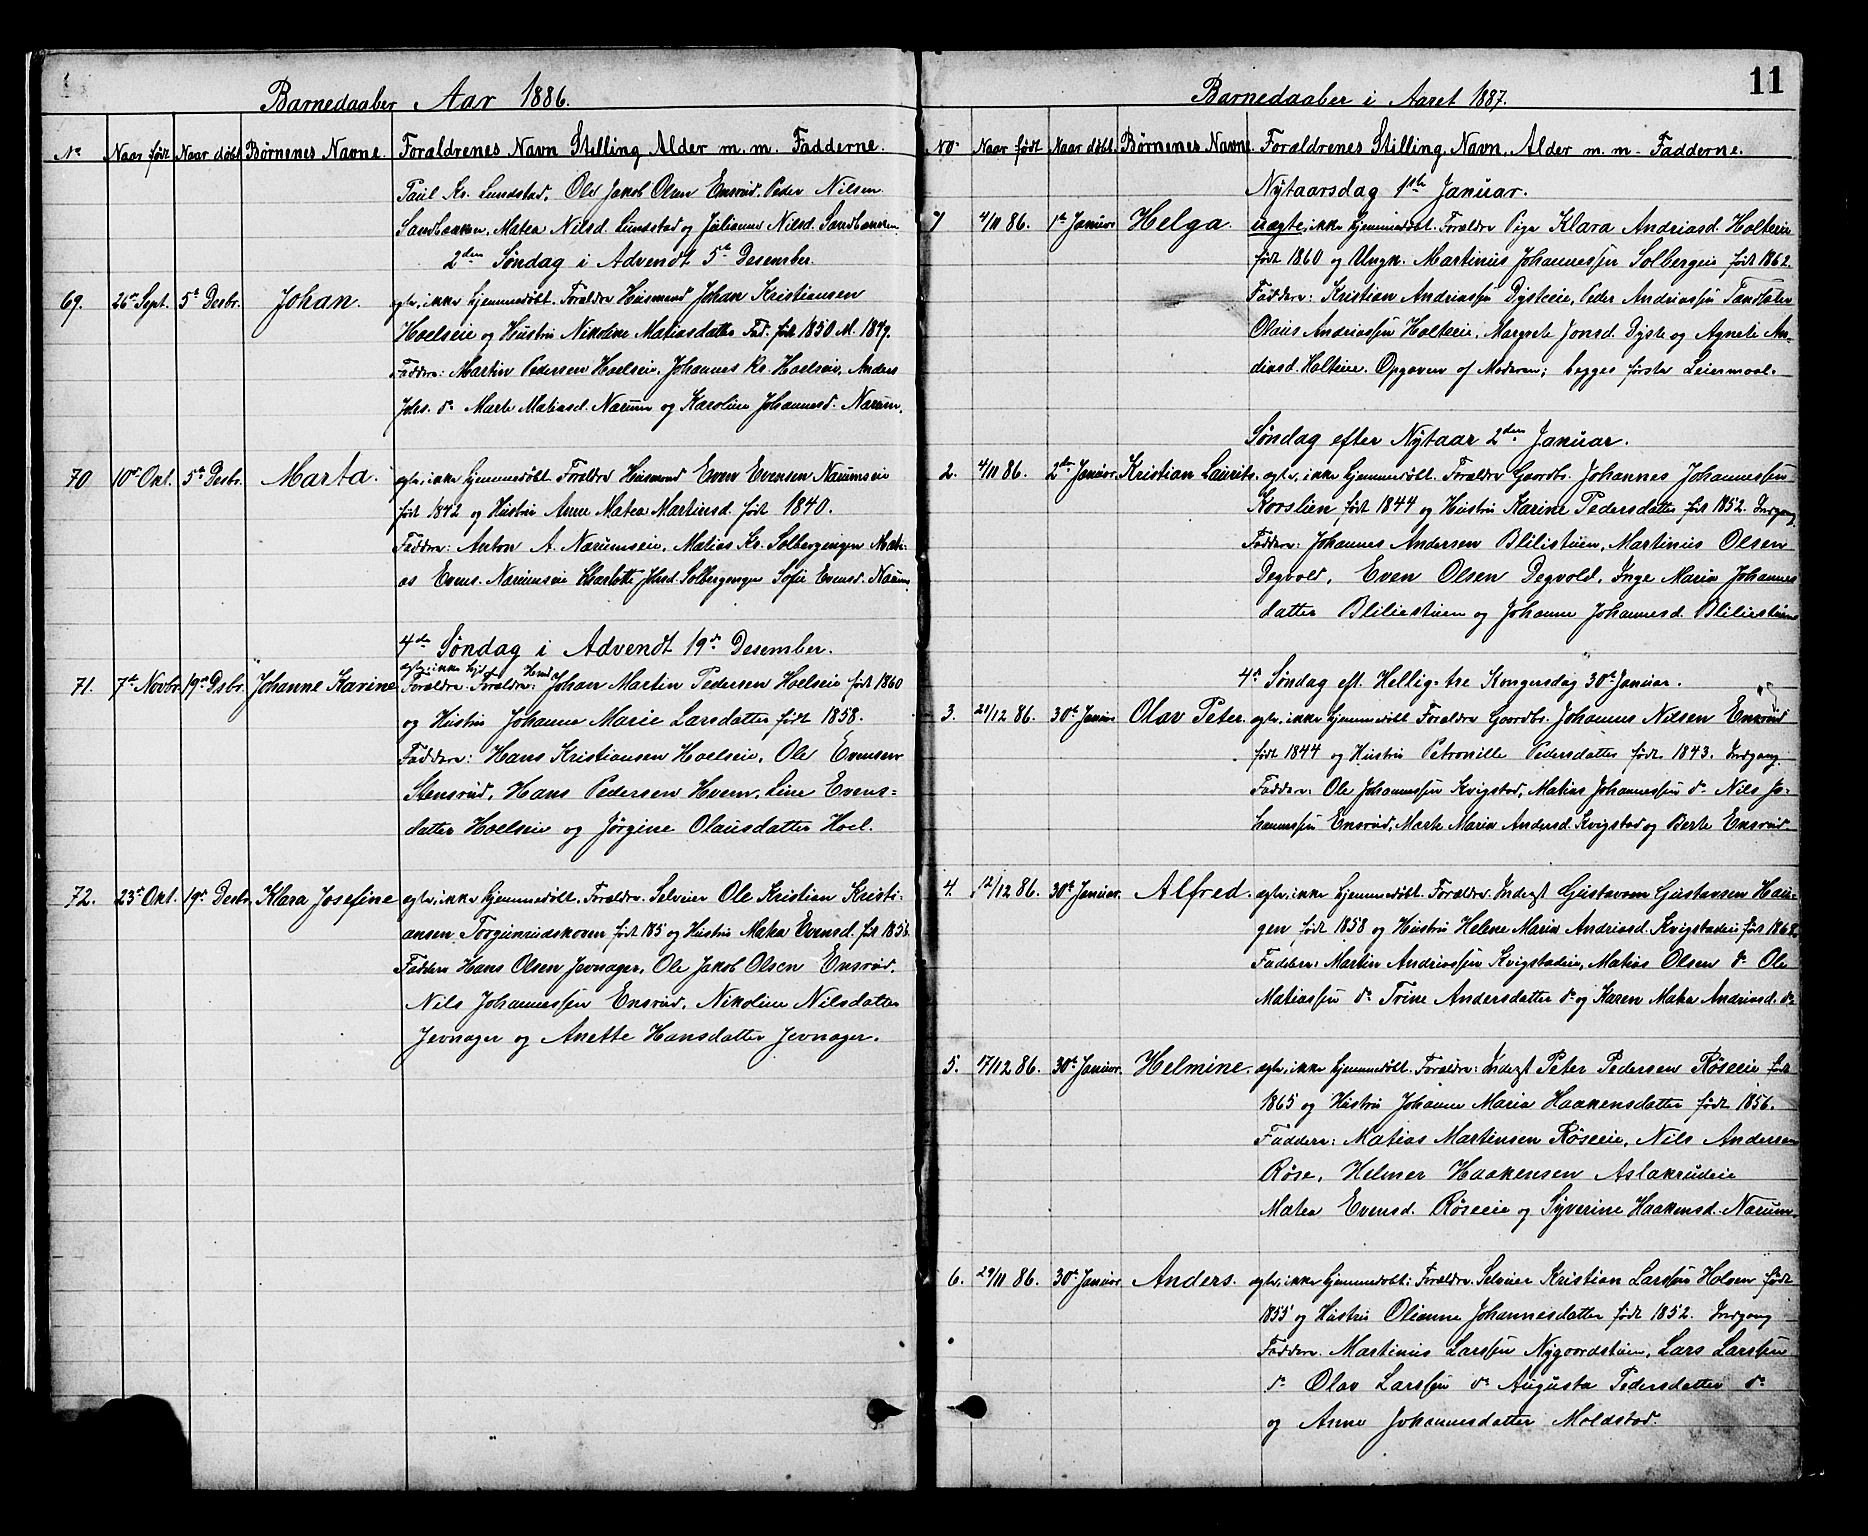 Barnedaaber Aar 1886.
No Naar født Naar døbt Børnenes Navne. Forældrenes Navn Stilling Alder m. m. Fadderne.
Paul Kr. Lundstad, Ole Jakob Olsen Ensrud, Peder Nilsen
Sandbakken, Matea Nilsd. Lundstad og Julianne Nilsd. Sandbakken
2den Søndag i Advendt 5te Desember.
69. 26de Sept. 5te Desbr. Johan. ægte, ikke hjemmedøbt. Forældre Husmand Johan Kristiansen
Hoelseie og Hustru Nikoline Matiasdatter Fad. født 1850 M. 1849.
Faddere: Martin Pedersen Hoelseie, Johannes Kr. Hoelseie, Anders
Johs. do Marte Matiasd. Narum og Karoline Johannesd. Narum.
70 10de Okt. 5te Desbr. Marta. ægte, ikke hjemmedøbt. Forældre Husmand Even Evensen Narumseie
født 1842 og Hustru Anne Matea Martinsd. født 1840.
Faddere: Anton A. Narumseie, Matias Kr. Solbergengen Mati-
as Evens. Narumseie Charlotte Johsd. Solbergengen Sofie Evensd. Narum.
4de Søndag i Advendt 19de Desember.
71. 7de Novbr. 19de Dsbr. Johanne Karine ægte, ikke hjd. Forældre. Forældre: Husd. Johan Martin Pedersen Hoelseie født 1860
og Hustru Johanne Marie Larsdatter født 1858.
Faddere: Hans Kristiansen Hoelseie, Ole Evensen
Stensrud, Hans Pedersen Hvem, Line Evens-
datter Hoelseie og Jørgine Olausdatter Hoel.
72. 23de Okt. 19de Desbr. Klara Josefine ægte, ikke hjemmedøbt. Forældre. Selveier Ole Kristian Kristi-
ansen Torgunrudskoven født 185 og Hustru Matea Evensd. født 1856.
Faddere Hans Olsen Jevnager, Ole Jakob Olsen Ensrud,
Nils Johannessen Ensrud, Nikoline Nilsdatter
Jevnager og Anette Hansdatter Jevnager.
11
Barnedaaber i Aaret 1887.
No. Naar født Naar døbt. Børnenes Navne. Forældrenes Stilling, Navn, Alder m. m. Fadderne.
Nytaarsdag 1ste Januar.
1 4/11 86. 1te Januar Helga. uægte, ikke hjemmedøbt. Forældre Pige Klara Andriasd. Holteeie
født 1860 og Ungk. Martinius Johannessen Solbergeie født 1862.
Faddere: Kristian Andriassen Dysteeie, Peder Andriassen Tandsæter
Olaus Andriassen Holteeie, Margrete Jonsd. Dyste og Agnete An-
driasd. Holteeie. Opgaven af Moderen; begges første Leiermaal.
Søndag efter Nytaar 2den Januar.
2. 4/11 86. 2den Januar. Kristian Laurits. ægte, ikke hjemmedøbt. Forældre Gaardbr. Johannes Johannessen
Korslien født 1844 og Hustru Karine Pedersdatter født 1852. Indgang.
Faddere: Johannes Andersen Blilistuen, Martinius Olsen
Degvold, Even Olsen Degvold, Inge Maria Johannes
datter Bliliestuen og Johanne Johannesd. Bliliestuen
4de Søndag eft. Hellig-tre Kongersdag 30te Januar.
3. 21/12 86. 30te Januar Olav Peter. ægte, ikke hjemmedøbt Forældre Gaardbr. Johannes Nilsen Ensrud
født 1844 og Hustru Petronille Pedersdatter født 1843. Indgang.
Faddere: Ole Johannessen Kvigstad, Matias Johannessen do Nils Jo-
hannessen Ensrud, Marte Maria Andersd. Kvigstad og Berte Ensrud.
4. 12/12 86. 30te Januar. Alfred. ægte, ikke hjemmedøbt. Forældre. Inderst Gustavson Gustavsen Hau-
gen født 1858 og Hustru Helene Maria Andriasd. Kvigstadeie født 1862.
Faddere: Martin Andriassen Kvigstadeie, Matias Olsen do Ole
Matiassen do Trine Andersdatter do og Karen Matea Andriasd. do
5. 17/12 86. 30te Januar. Helmine. ægte, ikke hjemmedøbt. Forældre: Inderst Peter Pedersen Røseeie født
1865 og Hustru Johanne Maria Haakensdatter født 1856.
Faddere: Matias Martinsen Røseeie, Nils Andersen
Røse, Helmer Haakensen Aslakrudeie
Matea Evensd. Røseeie og Syverine Haakensd. Narum.
6. 29/11 86. 30te Januar Anders. ægte, ikke hjemmedøbt: Forældre. Selveier Kristian Larssen Holven født
1855 og Hustru Olianne Johannesdatter født 1852. Indgang
Faddere. Martinius Larssen Nygaardstuen, Lars Larssen
do Olav Larssen do Augusta Pedersdatter do
og Anne Johannesdatter Moldstad.